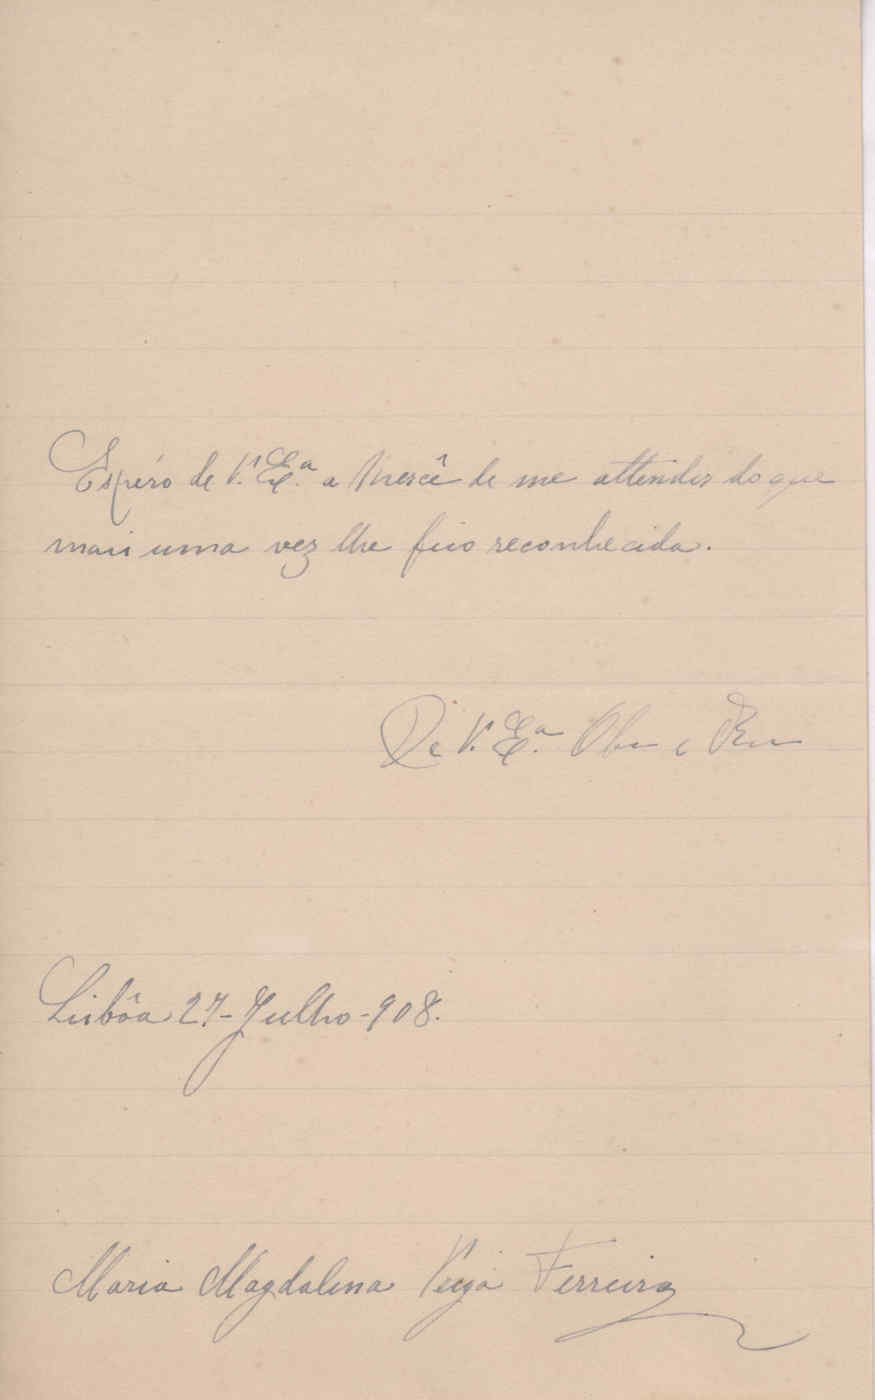 Espéro de V. Ex.ª a Mercê de me attender do que
mais uma vez lhe fico reconhecida.
De V. Ex.ª
Lisbôa 27-Julho-908.
Maria Magdalena Veiga Ferreira